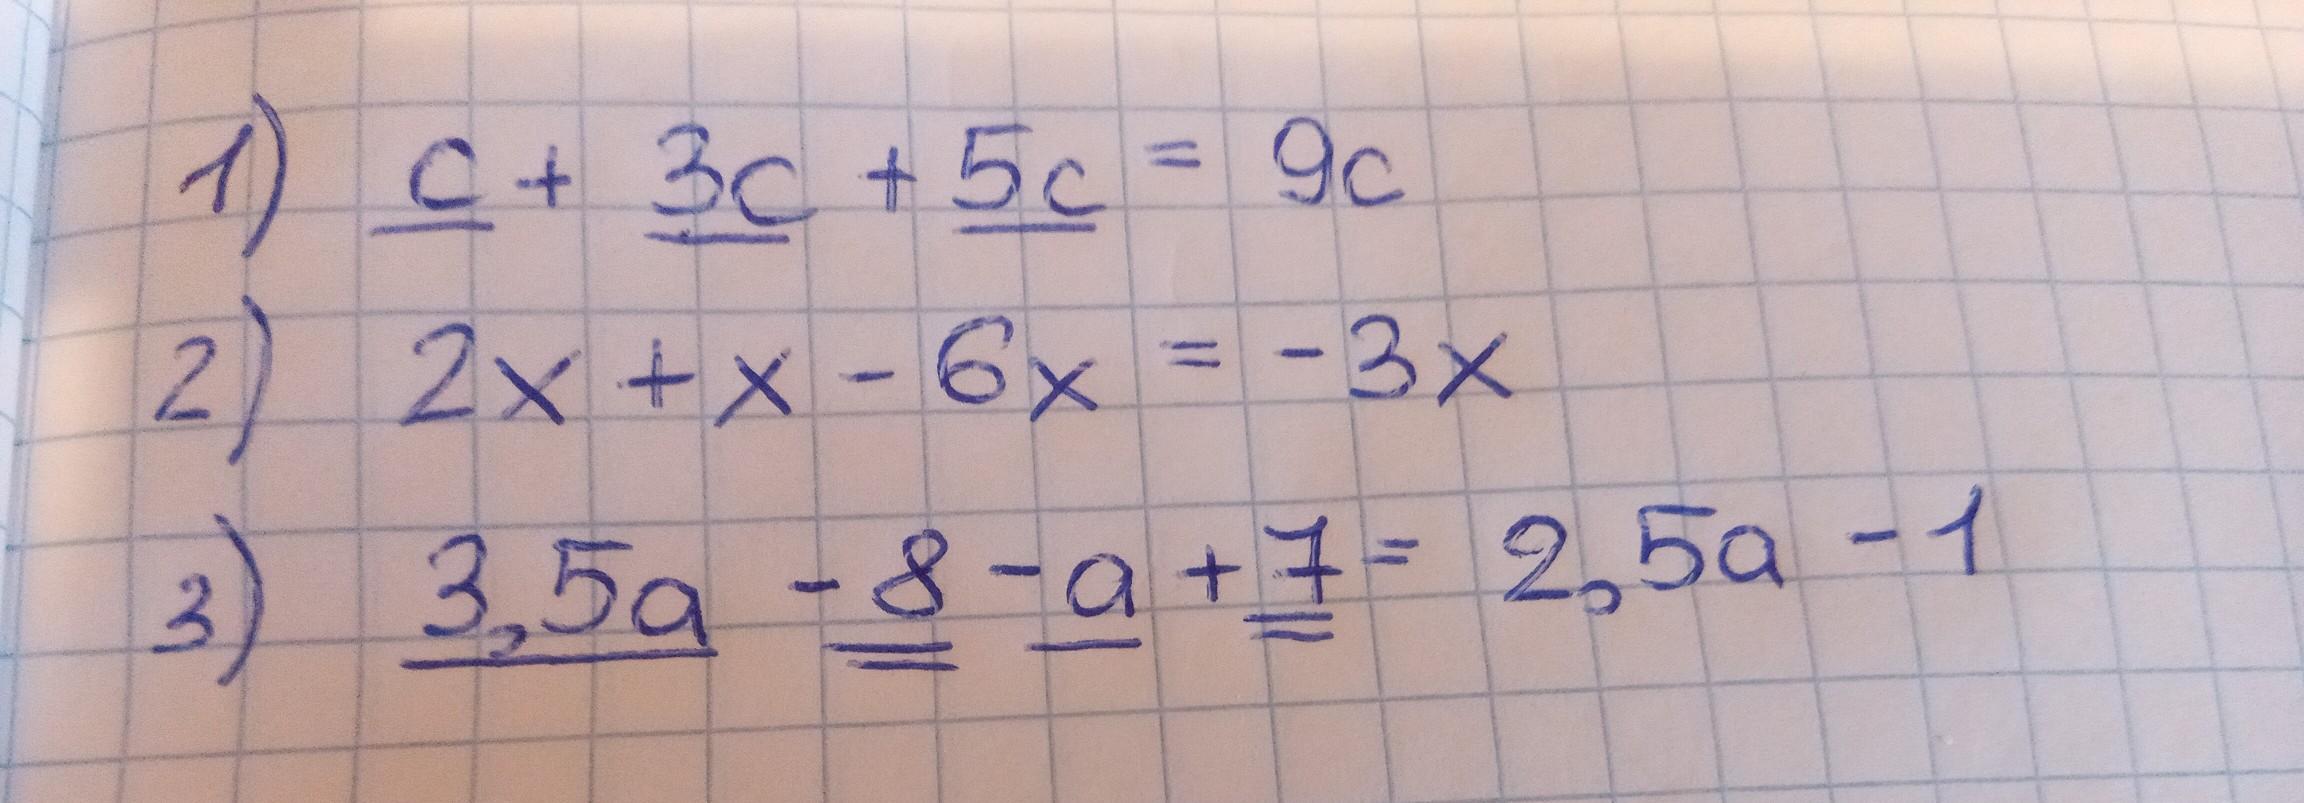 1) c + 3c + 5c = 9c
2) 2x + x - 6x = -3x
3) 3,5a - 8 - a + 7 = 2,5a - 1